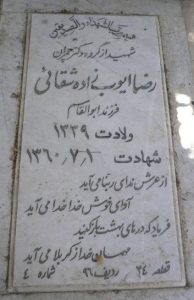 شهید از گروه دکتر چمران
رضا ایوب زاده شقاقی
فرزند ابوالقاسم
ولادت ۱۳۳۹
شهادت ۱۳۶۰/۷/۲
از عرش ندای ربنا می آید
آوای خوش خدا خدا می آید
فریاد که درهای بهشت باز کنید
مهمان خدا ز کربلا می آید
قطعه ۲۴ ردیف ۹۶ شماره ۴